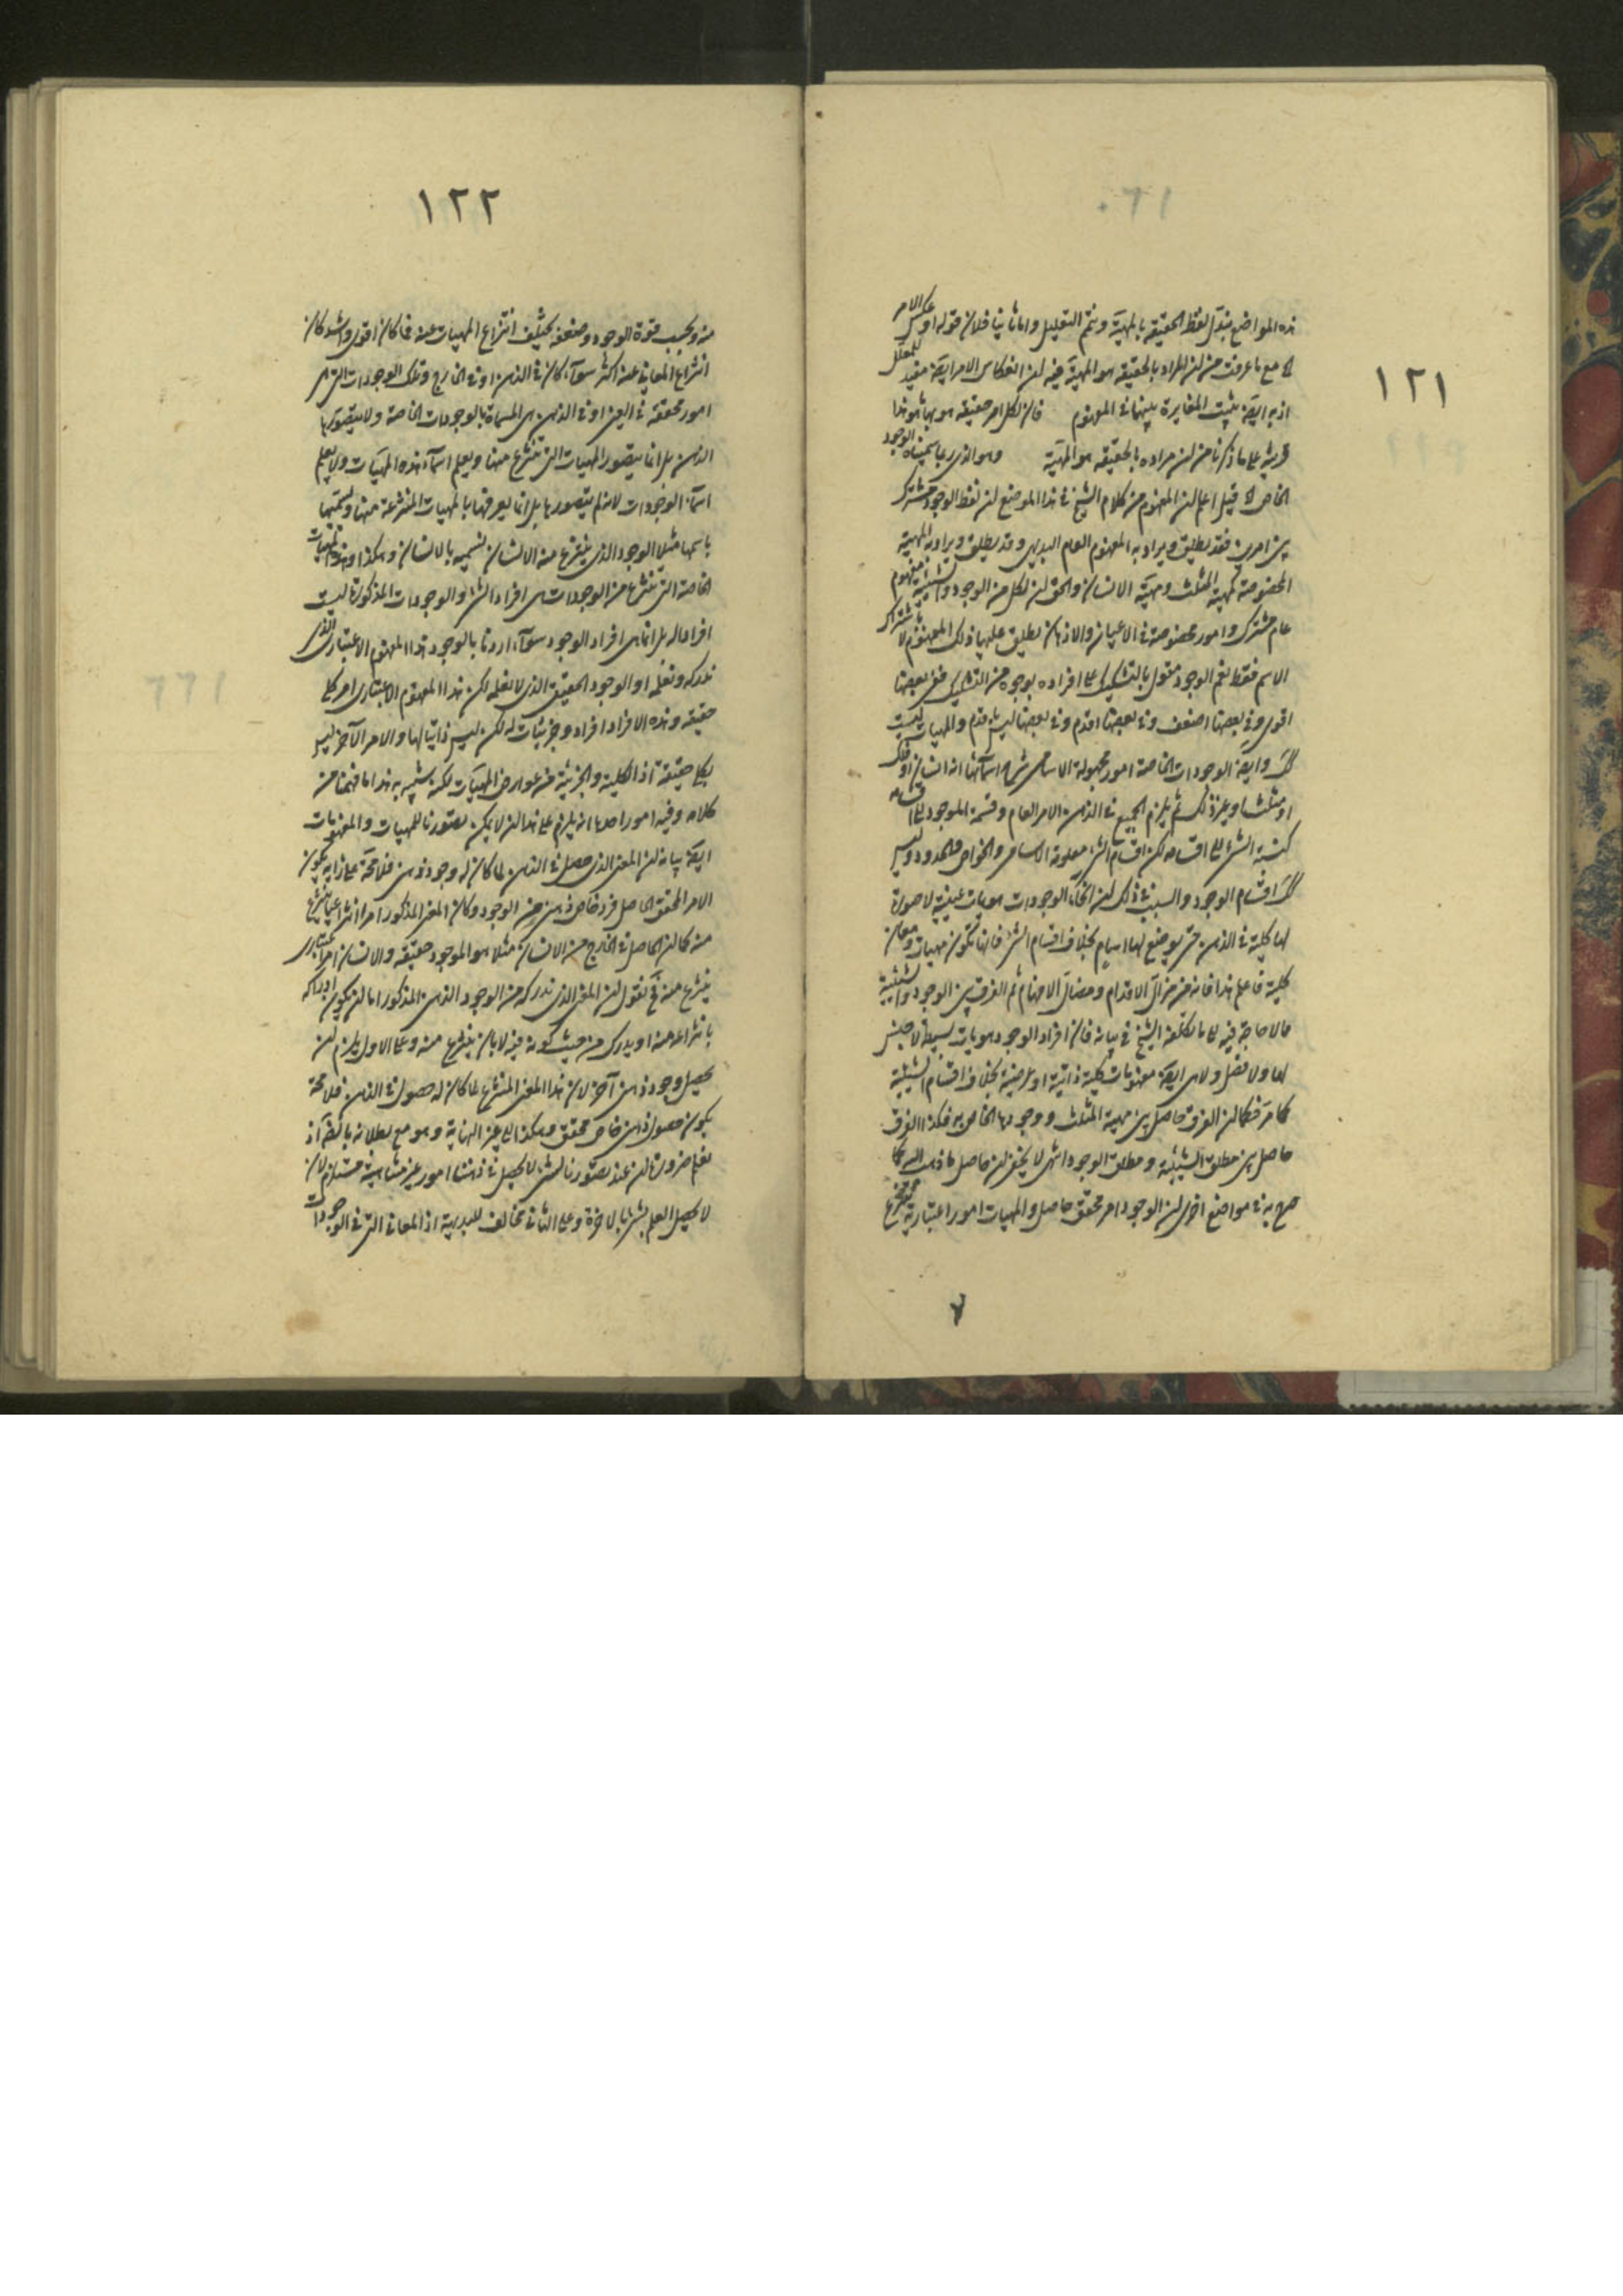 ١٢١
هذه المواضع بتبدل لفظ الحقيقة بالمهية ويتم التعليل واما ثانيا فلان قوله او عكس الامر
مع ما عرفت من ان المراد بالحقيقة هو المهية فيه ان انعكاس الامر ايضا مفيد للمعلل
اذ به ايضا يثبت المغايرة بينهما في المفهوم فان لكل امر حقيقة هو بها هو هذا
قرينة على ما ذكرنا من ان مراده بالحقيقة هو المهية وهو الذي ربما سميناه الوجود
الخاص قيل اعلم ان المفهوم من كلام الشيخ في هذا الموضع ان لفظ الوجود مشترك
بين امرين فقد يطلق ويراد به المفهوم العام البديهي وقد يطلق ويراد به المهية
المخصوصة كمهية المثلث ومهية الانسان والحق ان لكل من الوجود والشيئية مفهوم
عام مشترك وامور مخصوصة في الاعيان والاذهان يطلق عليها ذلك المفهوم لا باشتراك
الاسم فقط نعم الوجود مقول بالتشكيك على افراده بوجوه من التشكيك ففي بعضها
اقوى وفي بعضها اضعف وفي بعضها اقدم وفي بعضها ليس باقدم والمهيات ليست
كك وايضا الوجودات الخاصة امور مجهولة الاسامي شرح اسمائها انه انسان او فلك
او مثلث او غير ذلك ثم يلزم الجميع في الذهن الامر العام وقسمة الموجود الى اقسامه
كنسبة الشيء الى اقسامه لكن اقسام الشيء معلومة الاسامي والخواص والحدود وليس
كك اقسام الوجود والسبب في ذلك ان انحاء الوجودات هويات عينية لا صورة
لها كلية في الذهن حتى يوضع لها اسام بخلاف اقسام الشيء فانها تكون مهيات ومعان
كلية فاعلم هذا فانه من مزال الاقدام ومضال الافهام ثم الفرق بين الوجود والشيئية
مالا حاجة فيه الى ما تكلفه الشيخ في بيانه فان افراد الوجود هويات بسيطة لا جنس
لها ولا فصل ولا هي ايضا مفهومات كلية ذاتية او عرضية بخلاف اقسام الشيئية
كما مر فكما ان الفرق حاصل بين مهية المثلث ووجودها الخاص به فكذا الفرق
حاصل بين مطلق الشيئية ومطلق الوجود انتهى لا يخفى ان حاصل ما ذهب اليه كما
صرح به في مواضع اخرى ان الوجود امر محقق حاصل والمهيات امور اعتبارية منتزع
١٢٢
منه وبحسب قوة الوجود وضعفه يختلف انتزاع المهيات عنه فما كان اقوى واشد كان
انتزاع المعاني عنه اكثر سواء كان في الذهن او في الخارج وتلك الوجودات التي هي
امور محققة في العين او في الذهن هي المسماة بالوجودات الخاصة ولا يتصورها
الذهن بل انما يتصور المهيات التي تنتزع منها ويعلم اسماء هذه المهيات ولا يعلم
اسماء الوجودات لانه لم يتصورها بل انما يعرفها بالمهيات المنتزعة منها ويسميها
باسمها مثلا الوجود الذي ينتزع منه الانسان نسميه بالانسان وهكذا وهذه المهيات
الخاصة التي تنتزع من الوجودات هي افراد الشيء والوجودات المذكورة ليست
افرادا له بل انما هي افراد الوجود سواء اردنا بالوجود هذا المفهوم الاعتباري الذي
ندركه ونعلمه او الوجود الحقيقي الذي لا نعلمه لكن هذا المفهوم الاعتباري امر كلي
حقيقة وهذه الافراد افراد وجزئيات له لكن ليس ذاتيا لها والامر الآخر ليس
بكلي حقيقة اذ الكلية والجزئية من عوارض المهيات لكنه شبيه به هذا ما فهمنا من
كلامه وفيه امور احدها انه يلزم على هذا ان لا يمكن تصورنا للمهيات والمفهومات
ايضا بيانه ان المعنى الذي حصل في الذهن لما كان له وجود ذهني فلا محة على رايه يكون
الامر المحقق الحاصل فرد خاص ذهني من الوجود وكان المعنى المذكور امرا انتزاعيا ينتزع
منه كما ان الحاصل في الخارج من الانسان مثلا هو الموجود حقيقة والانسان امر اعتباري
ينتزع منه فح نقول ان المعنى الذي ندركه من الوجود الذهني المذكور اما ان يكون ادراكه
بانتزاعه منه او يدرك من حيث كونه فيه لا بان ينتزع منه وعلى الاول يلزم ان
يحصل وجود ذهني آخر لان هذا المعنى المنتزع لما كان له حصول في الذهن فلا محة
يكون حصول ذهني خاص محقق وهكذا الى غير النهاية وهو مع بطلانه باطل اذ
نعلم ضرورة ان عند تصورنا لشيء لا يحصل في ذهننا امور غير متناهية مستلزم لان
لا يحصل العلم بشيء بالاخرة وعلى الثاني مخالف للبديهة اذ المعاني التي في الوجودات